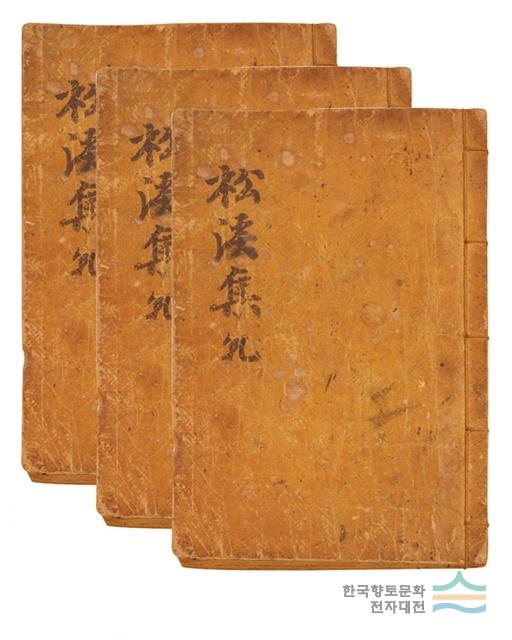 松溪集
松溪集
松溪集
한국향토문화
전자대전